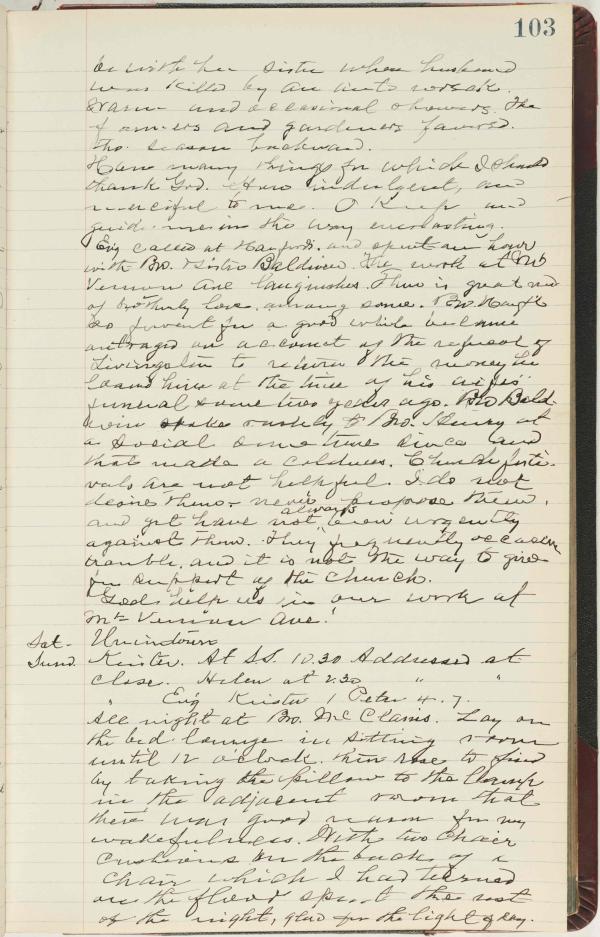 103
be with her sister whose husband
was killed by an auto wreck.
Warm and occasional showers. The
farmers and gardeners favored.
Tho. season backward.
Have many things for which I should
thank God. How indulgent, and
merciful to me. O Keep and
guide me in the way everlasting.
Evg called at and spent an hour
with Bro. & Sister Baldwin. The work at Mt
Vernon Ave languishes. There is great need
of brotherly love among some. Bro
so fervent for a good while became
outraged on account of the refusal of
Livingston to return the money he
loaned him at the time of his wife's
funeral some two years ago. Bro Bald-
win spoke rashly to Bro. Henry at
a social some time since and
that made a coldness. Church festi-
vals are not helpful. I do not
desire them - never propose them,
and yet have not always been urgently
against them. They frequently occasion
trouble, and it is not the way to give
for support of the church.
"God help us in our work at
Mt Vernon Ave!
Sat- Uniontown
Sund. Keister. At S.S. 10.30 Addressed at
close. Helen at 2.30 " "
" Evg Keister 1 Peter 4. 7.
All night at Bro. McClains. Lay on
the bed lounge in sitting room
until 12 o'clock. then rose to find
by taking the pillow to the lamp
in the adjacent room that
there was good reason for my
wakefulness. With two chair
cushions on the back of a
chair which I had turned
on the floor spent the rest
of the night, glad for the light of day.